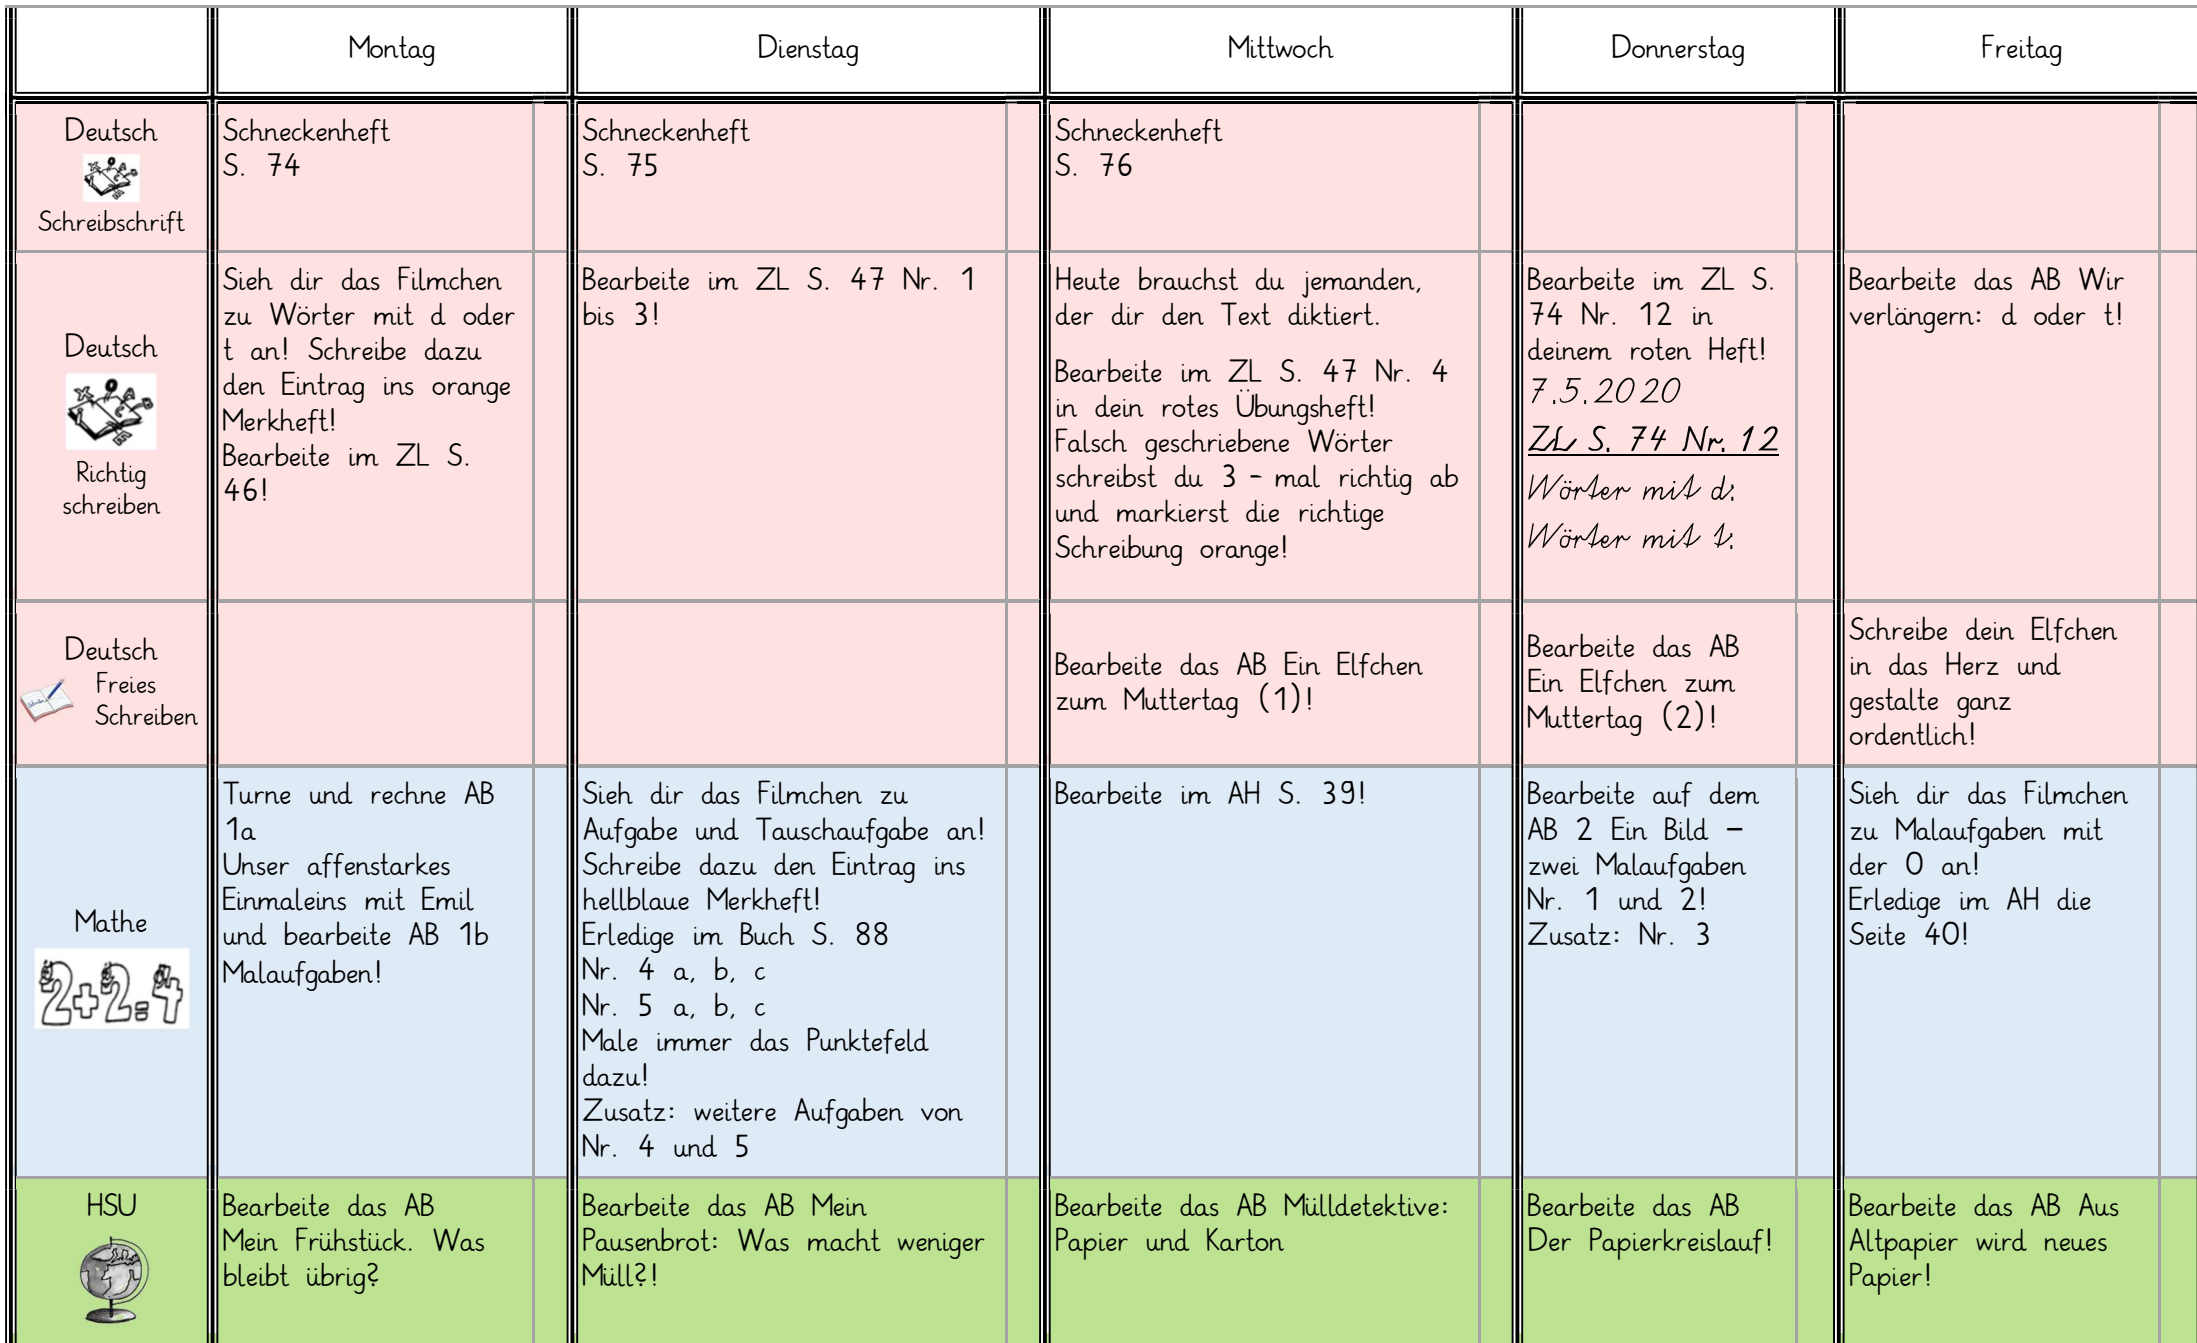 Montag
Dienstag
Mittwoch
Donnerstag
Freitag
Deutsch
Schreibschrift
Schneckenheft
S. 74
Schneckenheft
S. 75
Schneckenheft
S. 76
Deutsch
Richtig
schreiben
Sieh dir das Filmchen
zu Wörter mit d oder
t an! Schreibe dazu
den Eintrag ins orange
Merkheft!
Bearbeite im ZL S.
46!
Bearbeite im ZL S. 47 Nr. 1
bis 3!
Heute brauchst du jemanden,
der dir den Text diktiert.
Bearbeite im ZL S. 47 Nr. 4
in dein rotes Übungsheft!
Falsch geschriebene Wörter
schreibst du 3 - mal richtig ab
und markierst die richtige
Schreibung orange!
Bearbeite im ZL S.
74 Nr. 12 in
deinem roten Heft!
7.5.2020
ZL S. 74 Nr. 12
Wörter mit d:
Wörter mit t:
Bearbeite das AB Wir
verlängern: d oder t!
Deutsch
Freies
Schreiben
Bearbeite das AB Ein Elfchen
zum Muttertag (1)!
Bearbeite das AB
Ein Elfchen zum
Muttertag (2)!
Schreibe dein Elfchen
in das Herz und
gestalte ganz
ordentlich!
Mathe
2+2=4
Turne und rechne AB
1a
Unser affenstarkes
Einmaleins mit Emil
und bearbeite AB 1b
Malaufgaben!
Sieh dir das Filmchen zu
Aufgabe und Tauschaufgabe an!
Schreibe dazu den Eintrag ins
hellblaue Merkheft!
Erledige im Buch S. 88
Nr. 4 a, b, c
Nr. 5 a, b, c
Male immer das Punktefeld
dazu!
Zusatz: weitere Aufgaben von
Nr. 4 und 5
Bearbeite im AH S. 39!
Bearbeite auf dem
AB 2 Ein Bild –
zwei Malaufgaben
Nr. 1 und 2!
Zusatz: Nr. 3
Sieh dir das Filmchen
zu Malaufgaben mit
der 0 an!
Erledige im AH die
Seite 40!
HSU
Bearbeite das AB
Mein Frühstück. Was
bleibt übrig?
Bearbeite das AB Mein
Pausenbrot: Was macht weniger
Müll?!
Bearbeite das AB Mülldetektive:
Papier und Karton
Bearbeite das AB
Der Papierkreislauf!
Bearbeite das AB Aus
Altpapier wird neues
Papier!